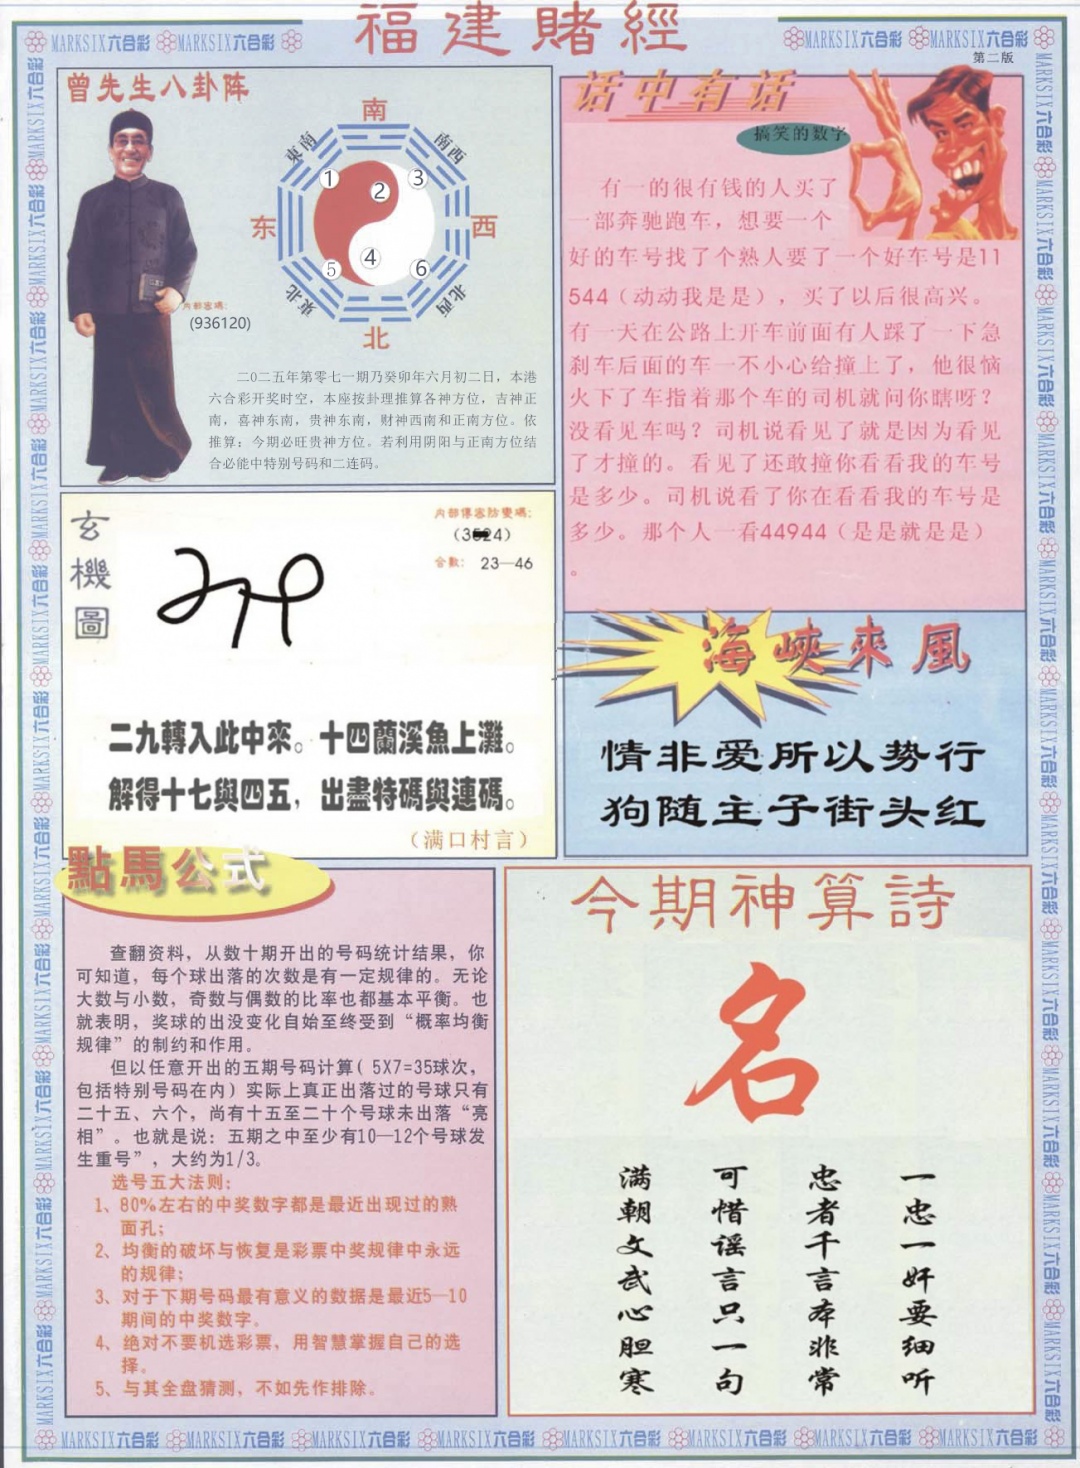 福建賭經
MARKSIX六合彩 MARKSIX六合彩 MARKSIX六合彩 MARKSIX六合彩
第二版
曾先生八卦阵
南
東南
南西
东
西
東北
北西
北
1
2
3
4
5
6
内部密碼：
(936120)
二0二五年第零七一期乃癸卯年六月初二日，本港
六合彩开奖时空，本座按卦理推算各神方位，吉神正
南，喜神东南，贵神东南，财神西南和正南方位。依
推算：今期必旺贵神方位。若利用阴阳与正南方位结
合必能中特别号码和二连码。
话中有话
搞笑的数字
有一的很有钱的人买了
一部奔驰跑车，想要一个
好的车号找了个熟人要了一个好车号是11
544（动动我是是），买了以后很高兴。
有一天在公路上开车前面有人踩了一下急
刹车后面的车一不小心给撞上了，他很恼
火下了车指着那个车的司机就问你瞎呀？
没看见车吗？司机说看见了就是因为看见
了才撞的。看见了还敢撞你看看我的车号
是多少。司机说看了你在看看我的车号是
多少。那个人一看44944（是是就是是）
。
玄機圖
内部傳密防變碼：
(3 24)
合數： 23—46
二九轉入此中來。十四蘭溪魚上灘。
解得十七與四五，出盡特碼與連碼。
（满口村言）
海峽來風
情非爱所以势行
狗随主子街头红
點馬公式
查翻资料，从数十期开出的号码统计结果，你
可知道，每个球出落的次数是有一定规律的。无论
大数与小数，奇数与偶数的比率也都基本平衡。也
就表明，奖球的出没变化自始至终受到“概率均衡
规律”的制约和作用。
但以任意开出的五期号码计算( 5X7=35球次，
包括特别号码在内）实际上真正出落过的号球只有
二十五、六个，尚有十五至二十个号球未出落“亮
相”。也就是说：五期之中至少有10—12个号球发
生重号”，大约为1/3。
选号五大法则：
1、80%左右的中奖数字都是最近出现过的熟
面孔；
2、均衡的破坏与恢复是彩票中奖规律中永远
的规律；
3、对于下期号码最有意义的数据是最近5—10
期间的中奖数字。
4、绝对不要机选彩票，用智慧掌握自己的选
择。
5、与其全盘猜测，不如先作排除。
今期神算詩
名
一忠一奸要细听
忠者千言本非常
可惜谣言只一句
满朝文武心胆寒
MARKSIX六合彩 MARKSIX六合彩 MARKSIX六合彩 MARKSIX六合彩 MARKSIX六合彩 MARKSIX六合彩 MARKSIX六合彩 MARKSIX六合彩